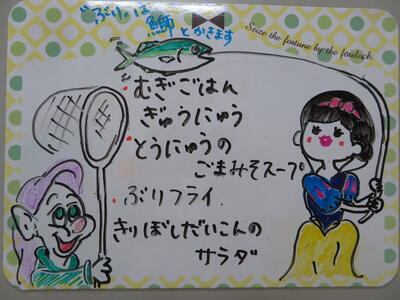 "ぶり"は鰤とかきます
Seize the fortune by the forelock.
・むぎごはん
きゅうにゅう
・とうにゅうの
ごまみそスープ
・ぶりフライ
・きりぼしだいこんの
サラダ